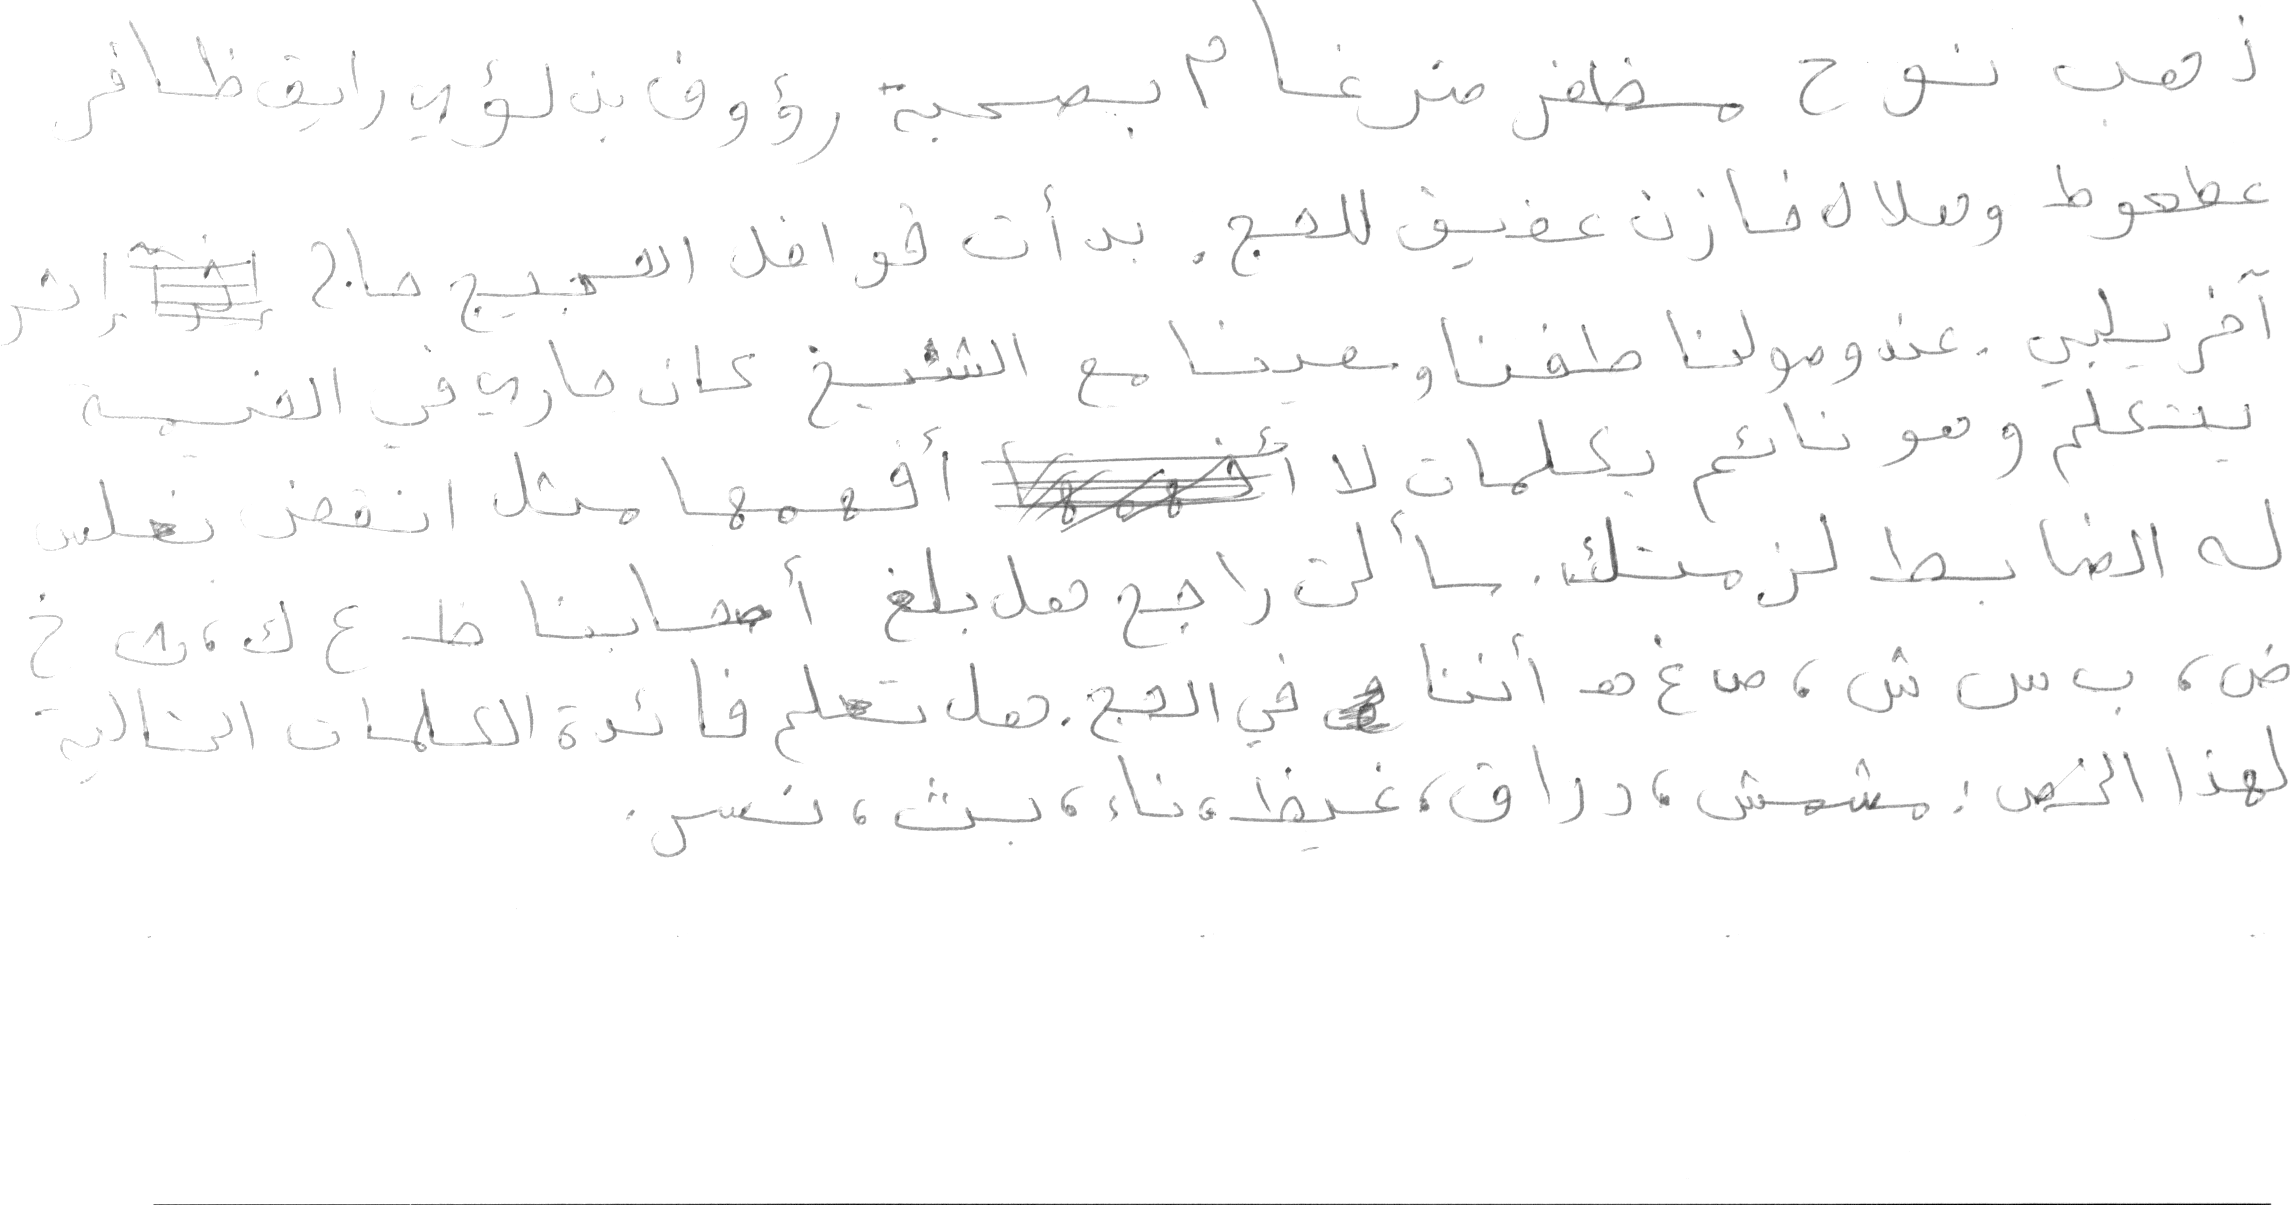 ذهب نوح مظفر ضرغام بصحبة رؤوف بن لؤي رايق ظافر
عطعوط وهلال خازن عفيق للحج. بدأت قوافل الحجيج حاج إثر
آخر يلبي. عند وصولنا طفنا وسعينا مع الشيخ كان جاري في الخيمة
يتكلم وهو نائم بكلمات لا أفهمها مثل انقض نغلس
له الضابط لزمتك. سألت راجح هل بلغ أصحابنا ظ ع ك، ث خ
ض، ب س ش، ص غ هـ أننا في الحج. هل تعلم فائدة الكلمات التالية
لهذا النص: مشمش، دراق، غيظ، ناء، بث، نسر.